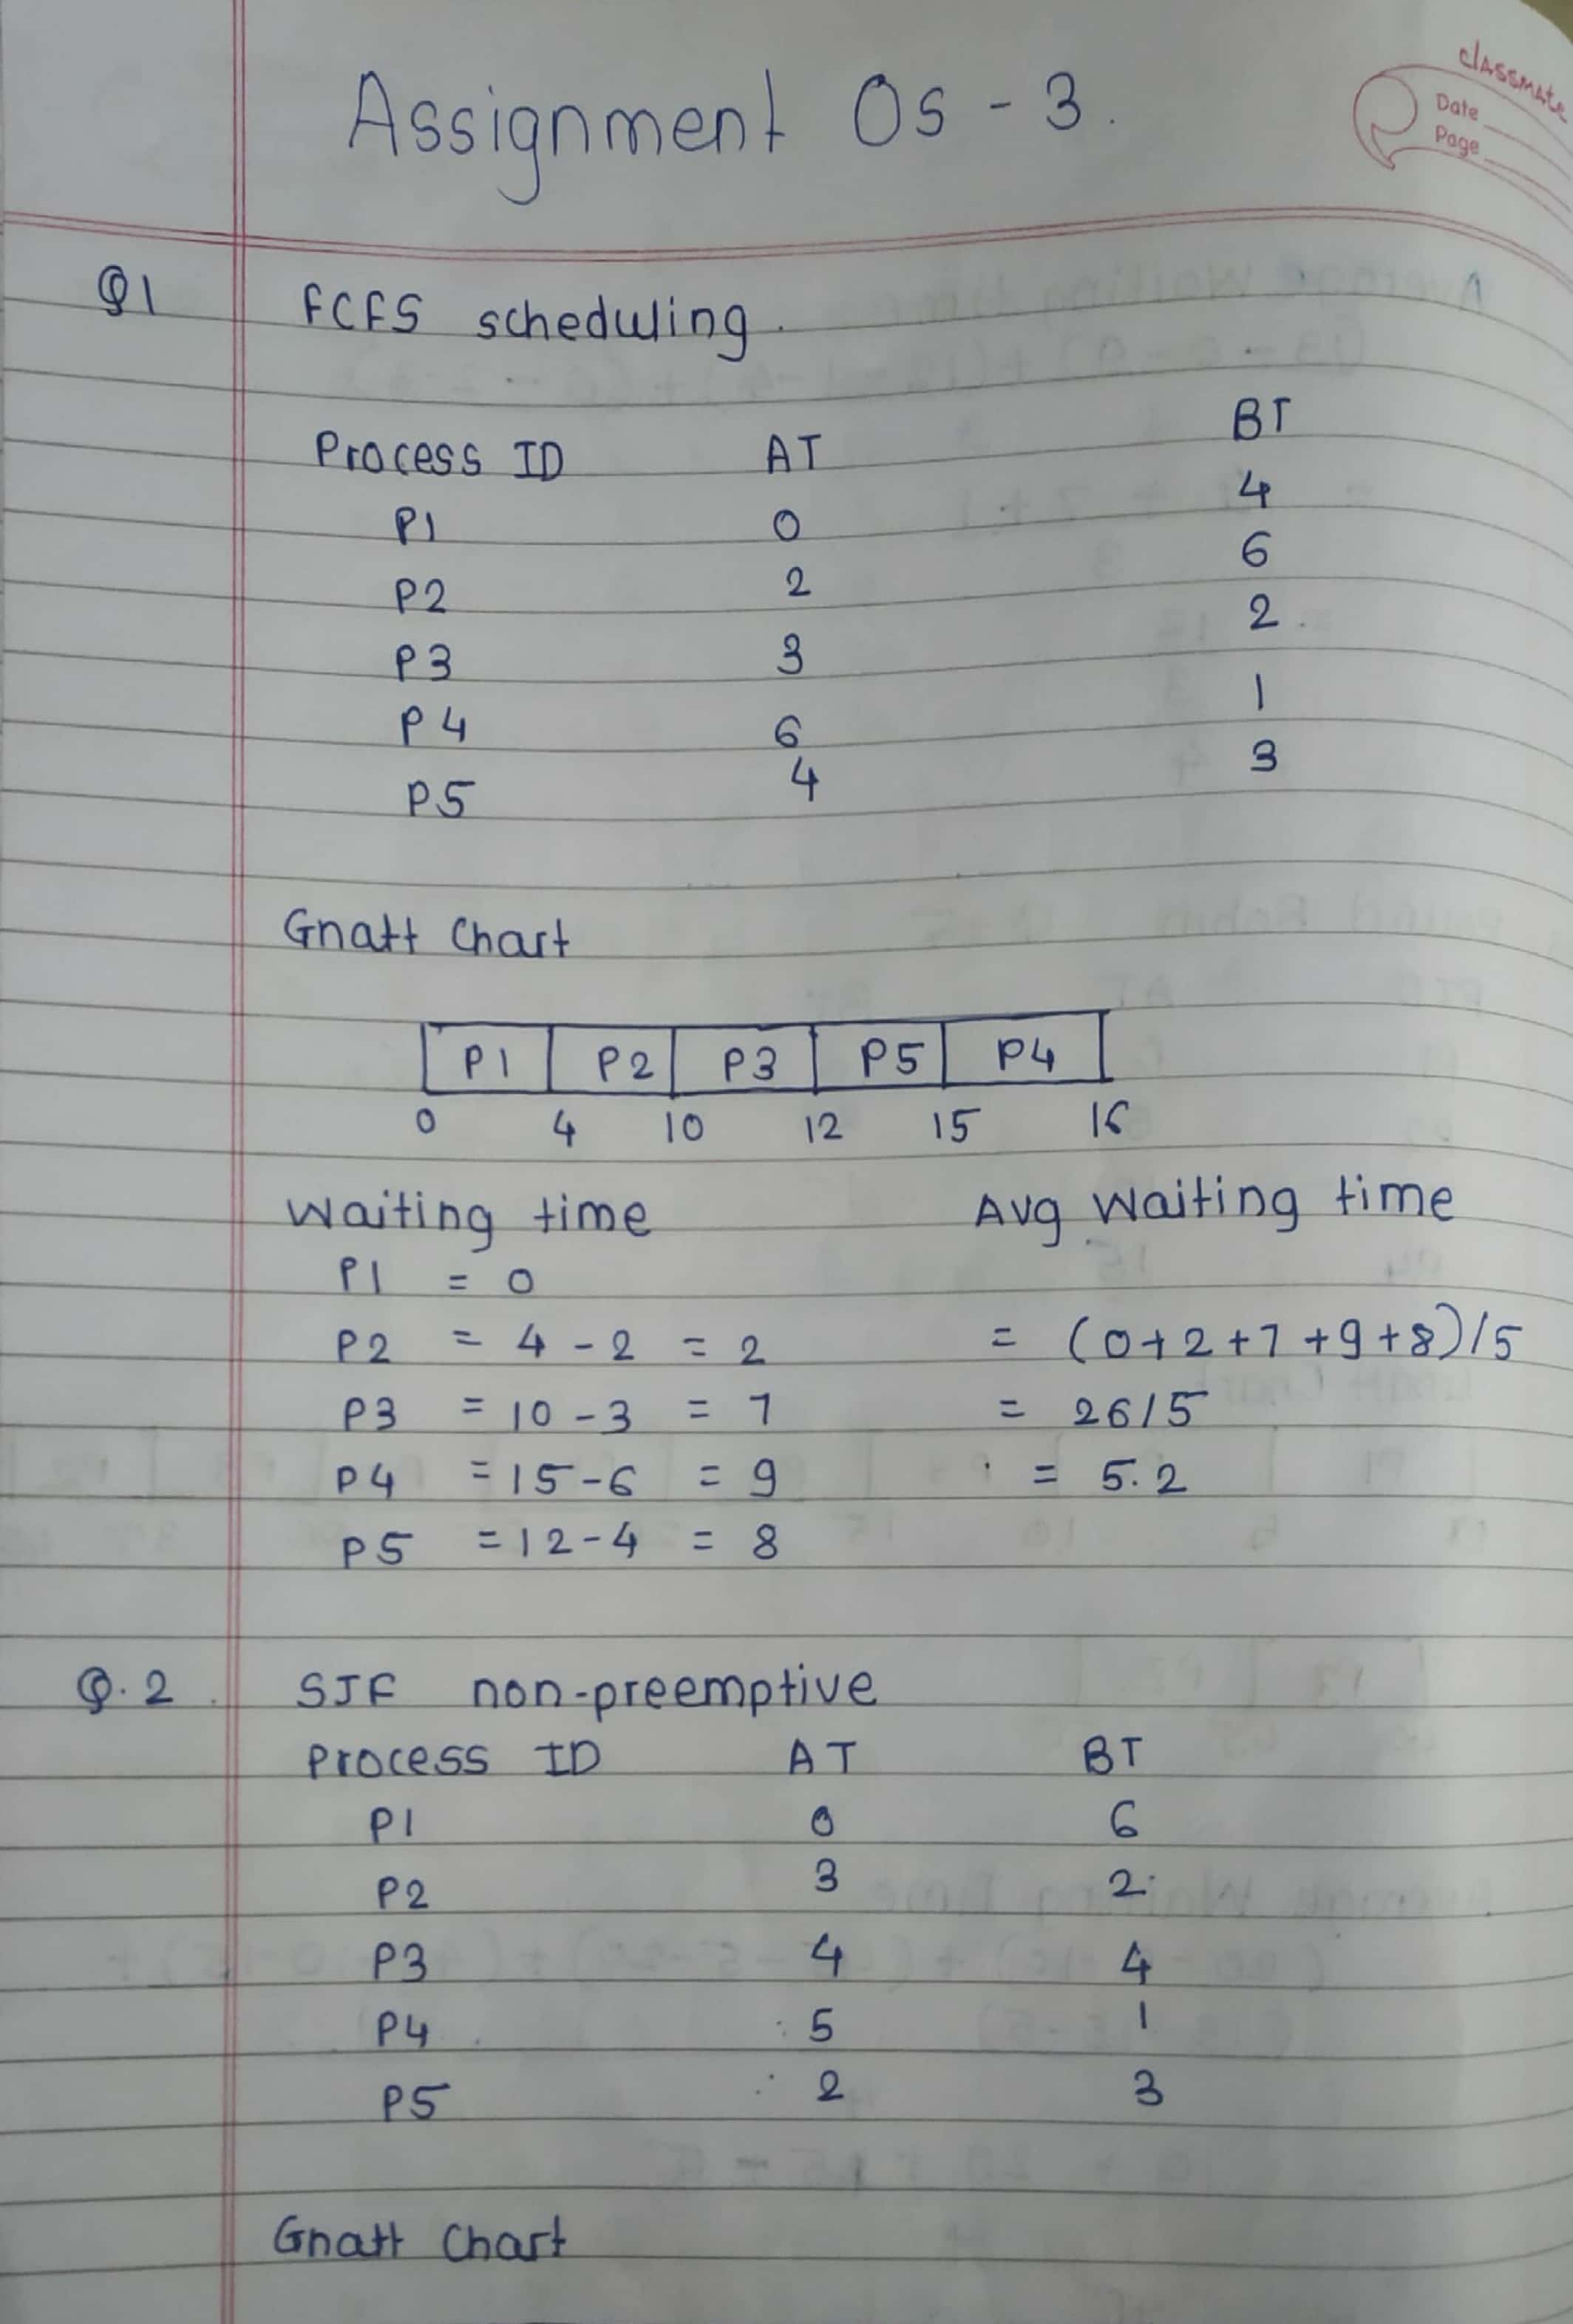 Assignment OS - 3.
classmate
Date
Page
Q1 FCFS scheduling.
Process ID AT BT
P1 0 4
P2 2 6
P3 3 2
P4 6 1
P5 4 3
Gnatt Chart
P1 P2 P3 P5 P4
0 4 10 12 15 16
Waiting time Avg Waiting time
P1 = 0
P2 = 4 - 2 = 2 = (0+2+7+9+8)/5
P3 = 10 - 3 = 7 = 26/5
P4 = 15 - 6 = 9 = 5.2
P5 = 12 - 4 = 8
Q.2 SJF non-preemptive
Process ID AT BT
P1 0 6
P2 3 2
P3 4 4
P4 5 1
P5 2 3
Gnatt Chart